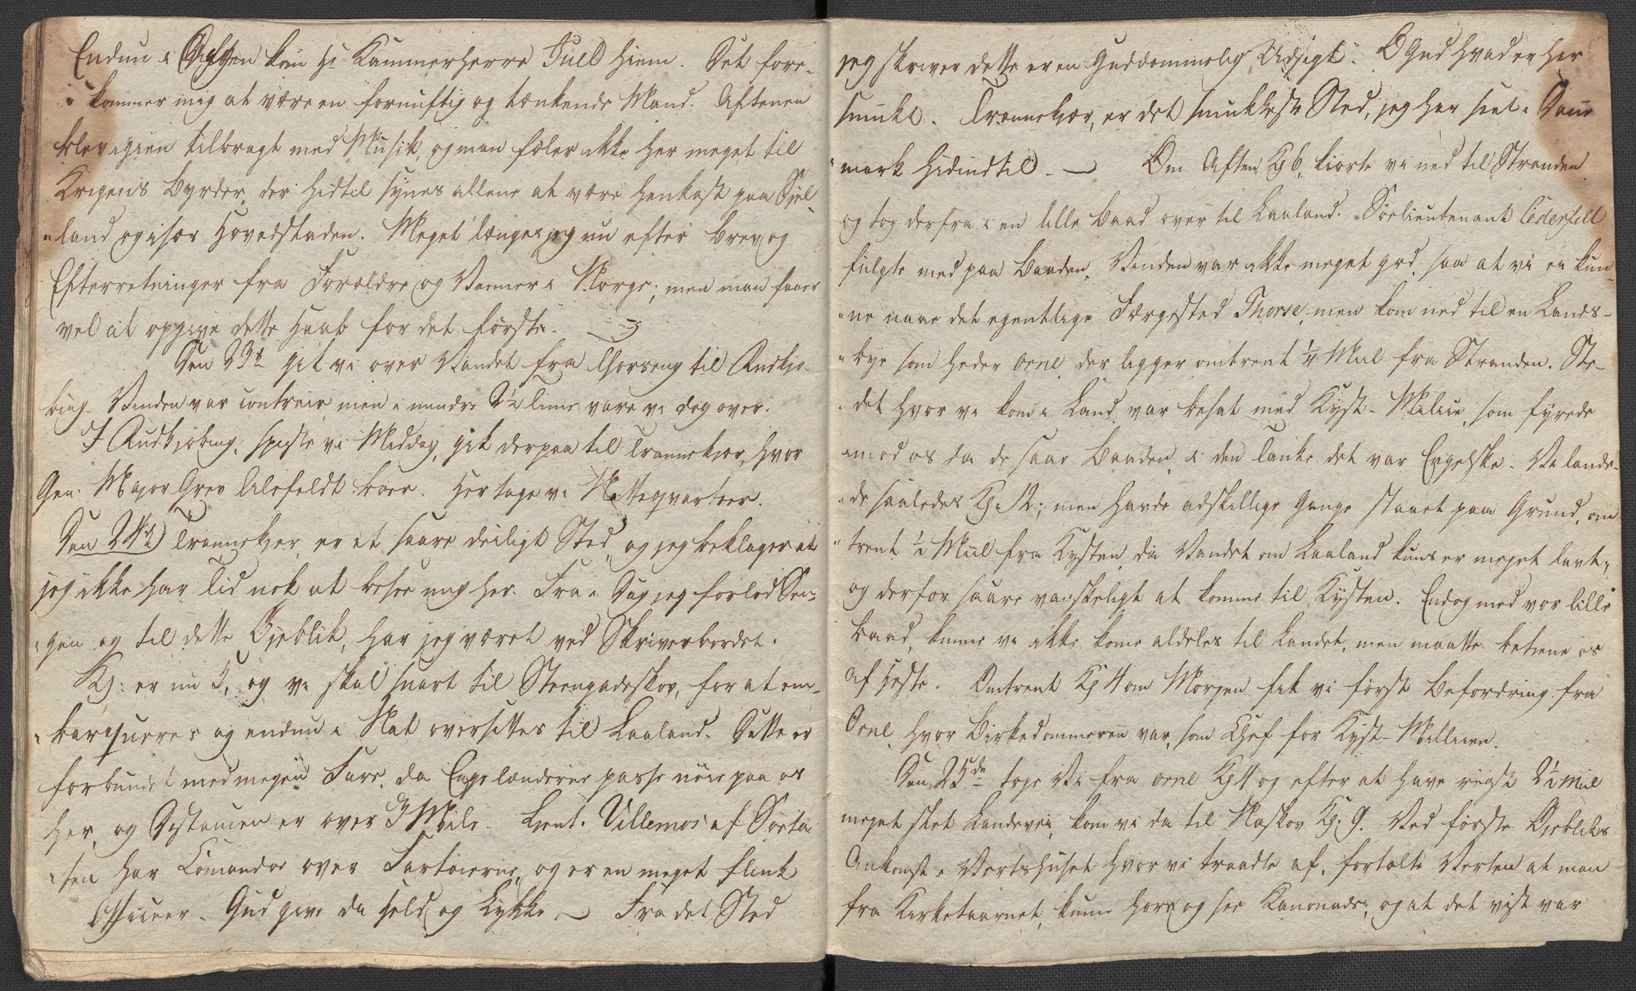 Endnu i Aften kom Hr Kammerherre Juell hiem. Det fore-
kommer mig at være en fornuftig og tænkende Mand. Aftenen
blev igien tilbragt med Musik, og man føler ikke her meget til
Krigens Byrder, der hidtil synes allene at være henkast paa Siel-
land og især Hovedstaden. Meget længes jeg nu efter Brev og
Efterretninger fra Forældre og Venner i Norge; men man faaer
vel at opgive dette Haab for det første.
Den 23de gik vi over Vandet fra Thorseng til Rudkjø-
bing. Vinden var contrair, men i mindre 2½ Time vare vi dog over.
I Rudkjøbing spiste vi Middag, gik derpaa til Trannekjær, hvor
Gen: Major Grev Alefeldt boer. Her toge vi Natteqvarteer.
Den 24de) Trannekjær er et saare deiligt Sted, og jeg beklager at
jeg ikke har Tid nok at besee mig her. Fra i Dag jeg forlod Sen-
gen og til dette Øjeblik, har jeg været ved Skriverbordet.
Kl: er nu 5, og vi skal snart til Steengadeskov, for at em-
barquere og endnu i Nat oversættes til Laaland. Dette er
forbundet med megen Fare, da Engelænderne passe nøie paa os
her, og Distancen er over 3 Mile. Lieut. Villemoes af Søeta-
ten har Comandoe over Fartøierne, og er en meget flink
Officeer. Gud give da Held og Lykke – Fra det Sted
jeg skriver dette er en Guddommelig Udsigt. O Gud hvad er her
smukt. Trannekjær, er det smukkeste Sted, jeg har seet i Dann-
mark hidindtil. — Om Aften Kl 6, kiørte vi ned til Stranden
og tog derfra i en lille Baad over til Laaland. Søelieutenant Cederfeld
fulgte med paa Baaden. Vinden var ikke meget god, saa at vi ei kun-
ne naae det egentlige Færgested Thorse, men kom ned til en Lands-
bye som heder Orne, der ligger omtrent ¼ Miil fra Stranden. Ste-
det hvor vi kom i Land var besat med Kyst-Milice, som fyrede
imod os da de saae Baaden i den Tanke det var Engelske. Vi lande-
de saaledes Kl. 12; men havde adskillige Gange staaet paa Grund, om
trent ½ Miil fra Kysten, da Vandet om Laaland kuns er meget lavt,
og derfor saare vanskeligt at komme til Kysten. Endog med vor lille
Baad, kunne vi ikke kome aldeles til Landet, men maatte betiene os
af Heste. Omtrent Kl 4 om Morgen fik vi først Befordring fra
Orne, hvor Birkedommeren var, som Chef for Kyst-Millicen.
Den 25de toge vi fra Orne Kl 4 og efter at have reist 2½ Miil
meget slet Landevei, kom vi da til Naskov Kl. 9. Ved første Øjebliks
Ankomst i Vertshuset hvor vi traadte af, fortalte Verten at man
fra Kirketaarnet, kunne høre og see Kanonade; og at det vist var